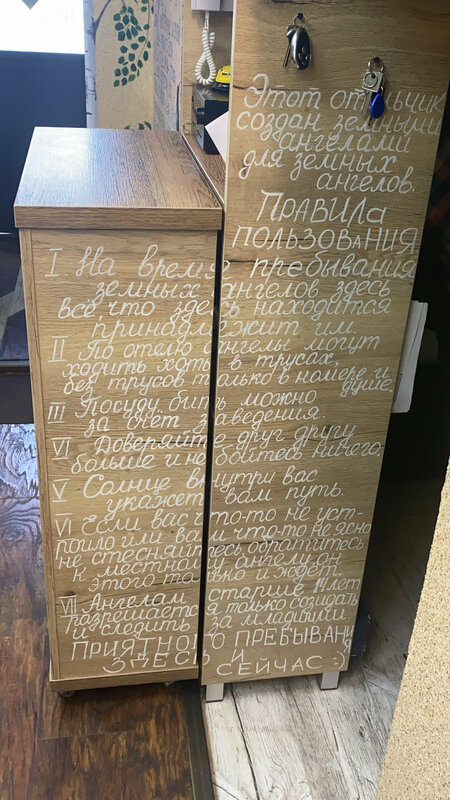 Этот отельчик
создан земными
ангелами
для земных
ангелов.
ПРАВИЛА
ПОЛЬЗОВАНИЯ
I. На время пребывания
земных ангелов здесь
всё что здесь находится
принадлежит им.
II По отелю ангелы могут
ходить хоть в трусах,
без трусов только в номере и
душе.
III Посуду бить можно
за счёт заведения.
VI Доверяйте друг другу
больше и не бойтесь ничего.
V Солнце внутри вас
укажет вам путь.
VI Если вас что-то не уст-
роило или вам что-то не ясно
не стесняйтесь обратитесь
к местному ангелу он
этого только и ждёт
VII Ангелам старше 14 лет
разрешается только созидать
и следить за младшими.
ПРИЯТНОГО ПРЕБЫВАНИЯ
ЗДЕСЬ И
СЕЙЧАС :)